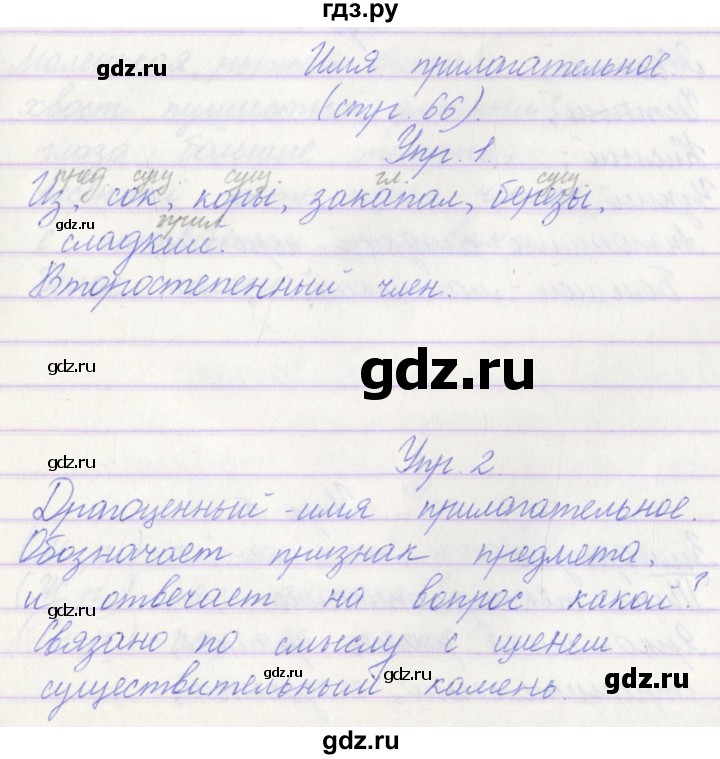 гдз.ру
Имя прилагательное
gdz.ru
(стр. 66).
Упр. 1.
пред сущ сущ. гл. сущ
Из, сок, коры, закапал, берёзы,
gdz.ru
прил.
сладкий.
Второстепенный член.
gdz.ru
gdz.ru
Упр. 2.
gdz.ru
Драгоценный - имя прилагательное.
Обозначает признак предмета,
и отвечает на вопрос какой?
gdz.ru
Связано по смыслу с именем
gdz.ru gdz.ru gdz.ru
существительным камень.
gdz.ru